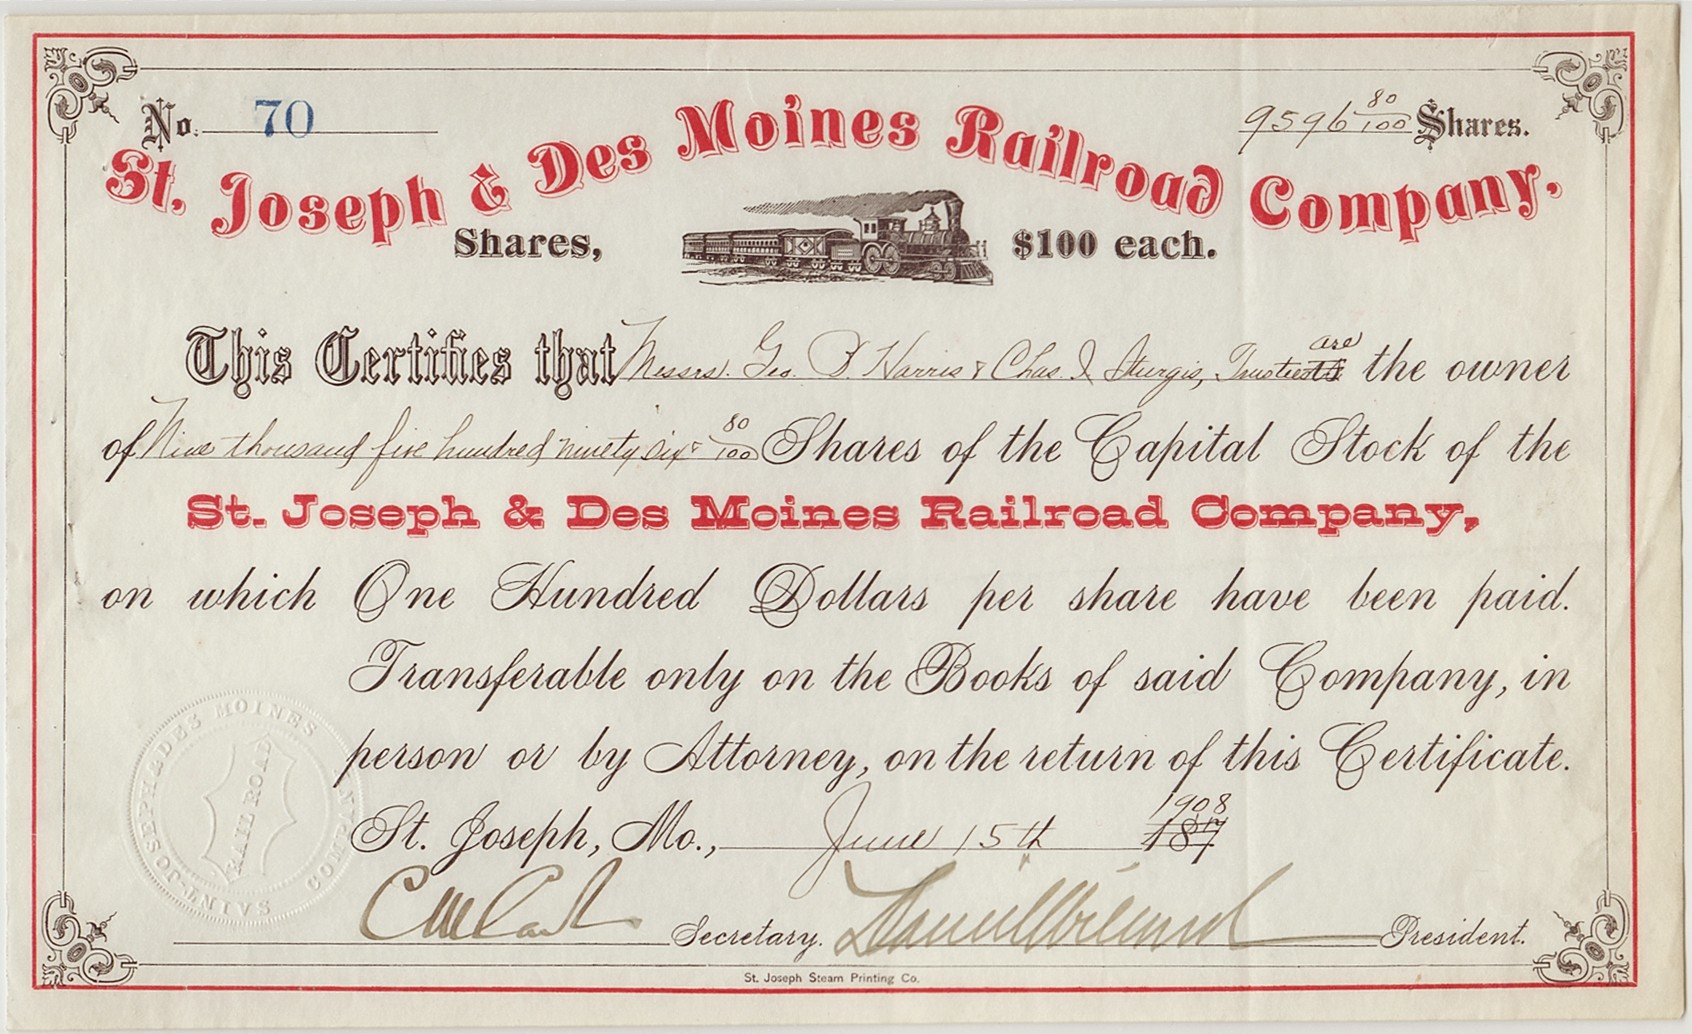 No. 70
9596 80/100 Shares.
St. Joseph & Des Moines Railroad Company.
Shares, $100 each.
This Certifies that Messrs. Geo. B. Harris & Chas. I. Sturgis, Trustees are the owner
of Nine thousand five hundred ninety six & 80/100 Shares of the Capital Stock of the
St. Joseph & Des Moines Railroad Company,
on which One Hundred Dollars per share have been paid.
Transferable only on the Books of said Company, in
person or by Attorney, on the return of this Certificate.
St. Joseph, Mo., June 15th 1908 187
Secretary. President.
St. Joseph Steam Printing Co.
SAINT JOSEPH & DES MOINES
RAIL ROAD
COMPANY